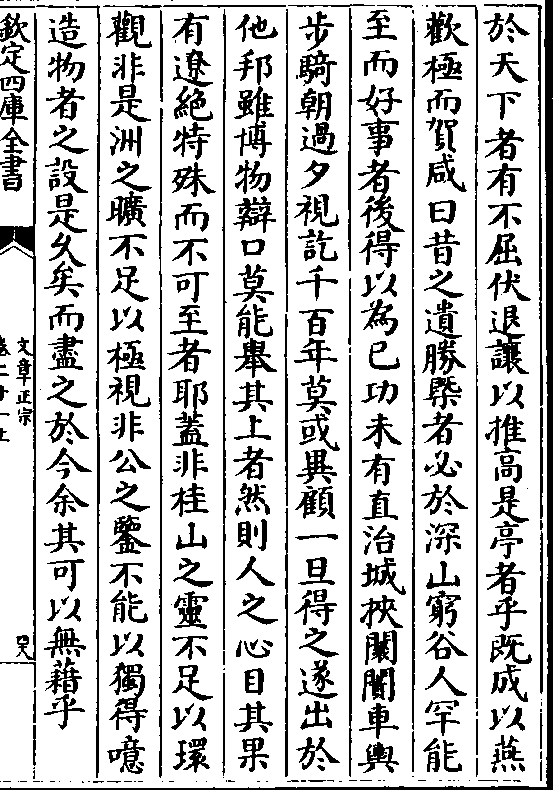 於天下者有不屈伏退讓以推高是亭者乎旣成以燕
歡極而賀咸曰昔之遺勝槩者必於深山窮谷人罕能
至而好事者後得以為已功未有直治城挾闤闠車輿
步騎朝過夕視訖千百年莫或異顧一旦得之遂出於
他邦雖博物辯口莫能舉其上者然則人之心目其果
有遼絶特殊而不可至者耶蓋非桂山之靈不足以環
觀非是洲之曠不足以極視非公之鑒不能以獨得噫
造物者之設是久矣而盡之於今余其可以無藉乎
欽定四庫全書
文章正宗
卷二十一上
四八